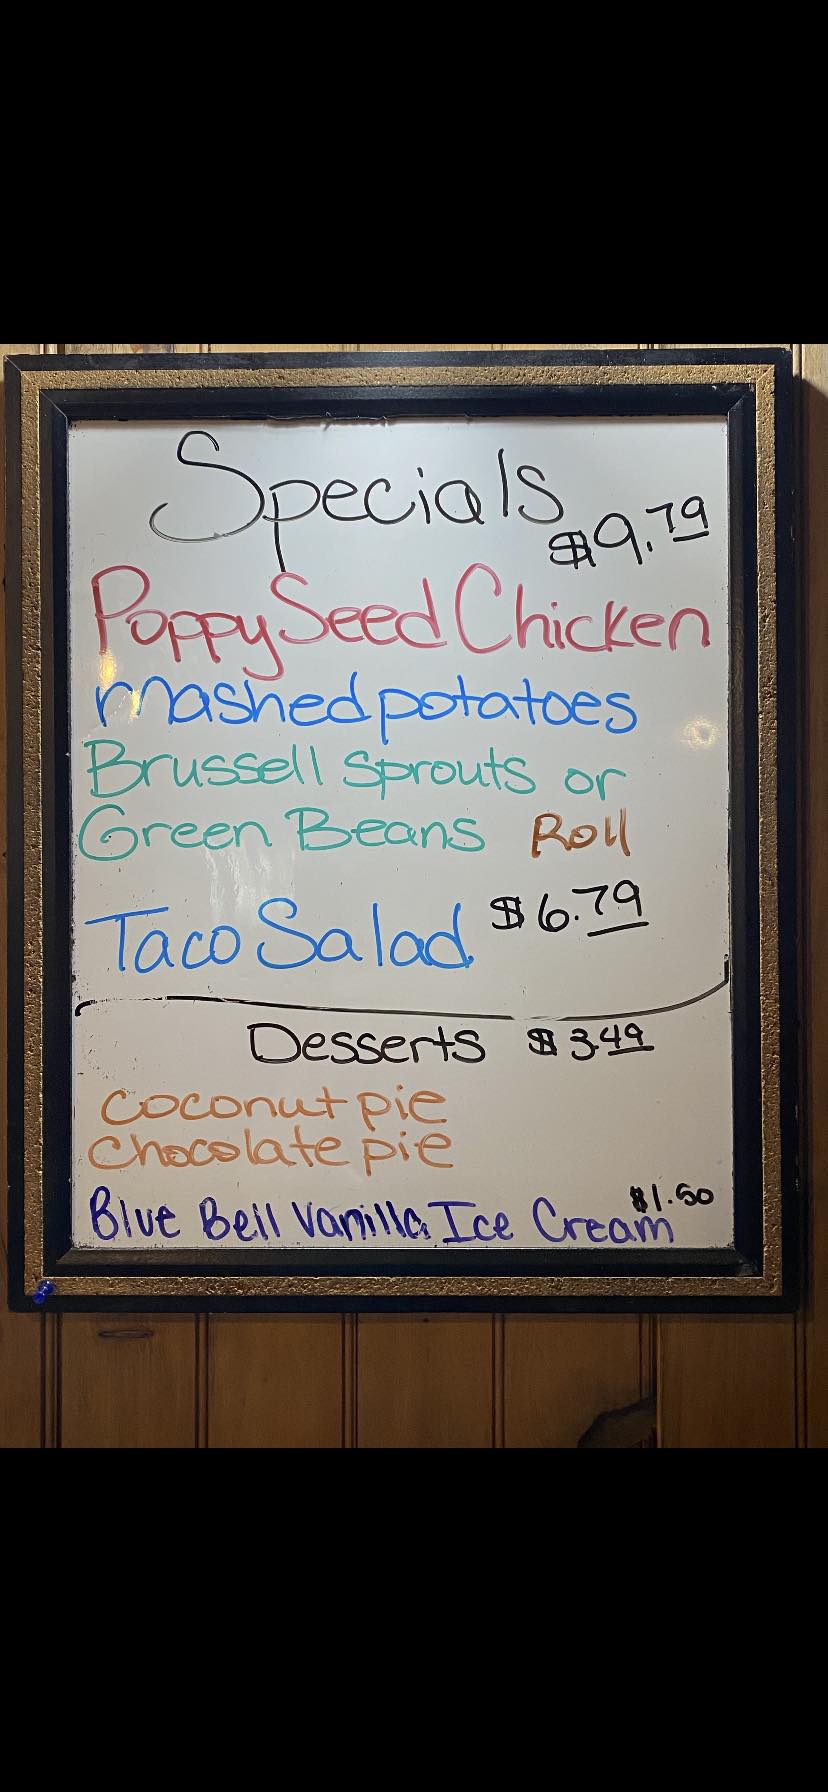 Specials
$9.79
Poppy Seed Chicken
mashed potatoes
Brussell sprouts or
Green Beans Roll
Taco Salad $6.79
Desserts $3.49
coconut pie
chocolate pie
$1.50
Blue Bell Vanilla Ice Cream